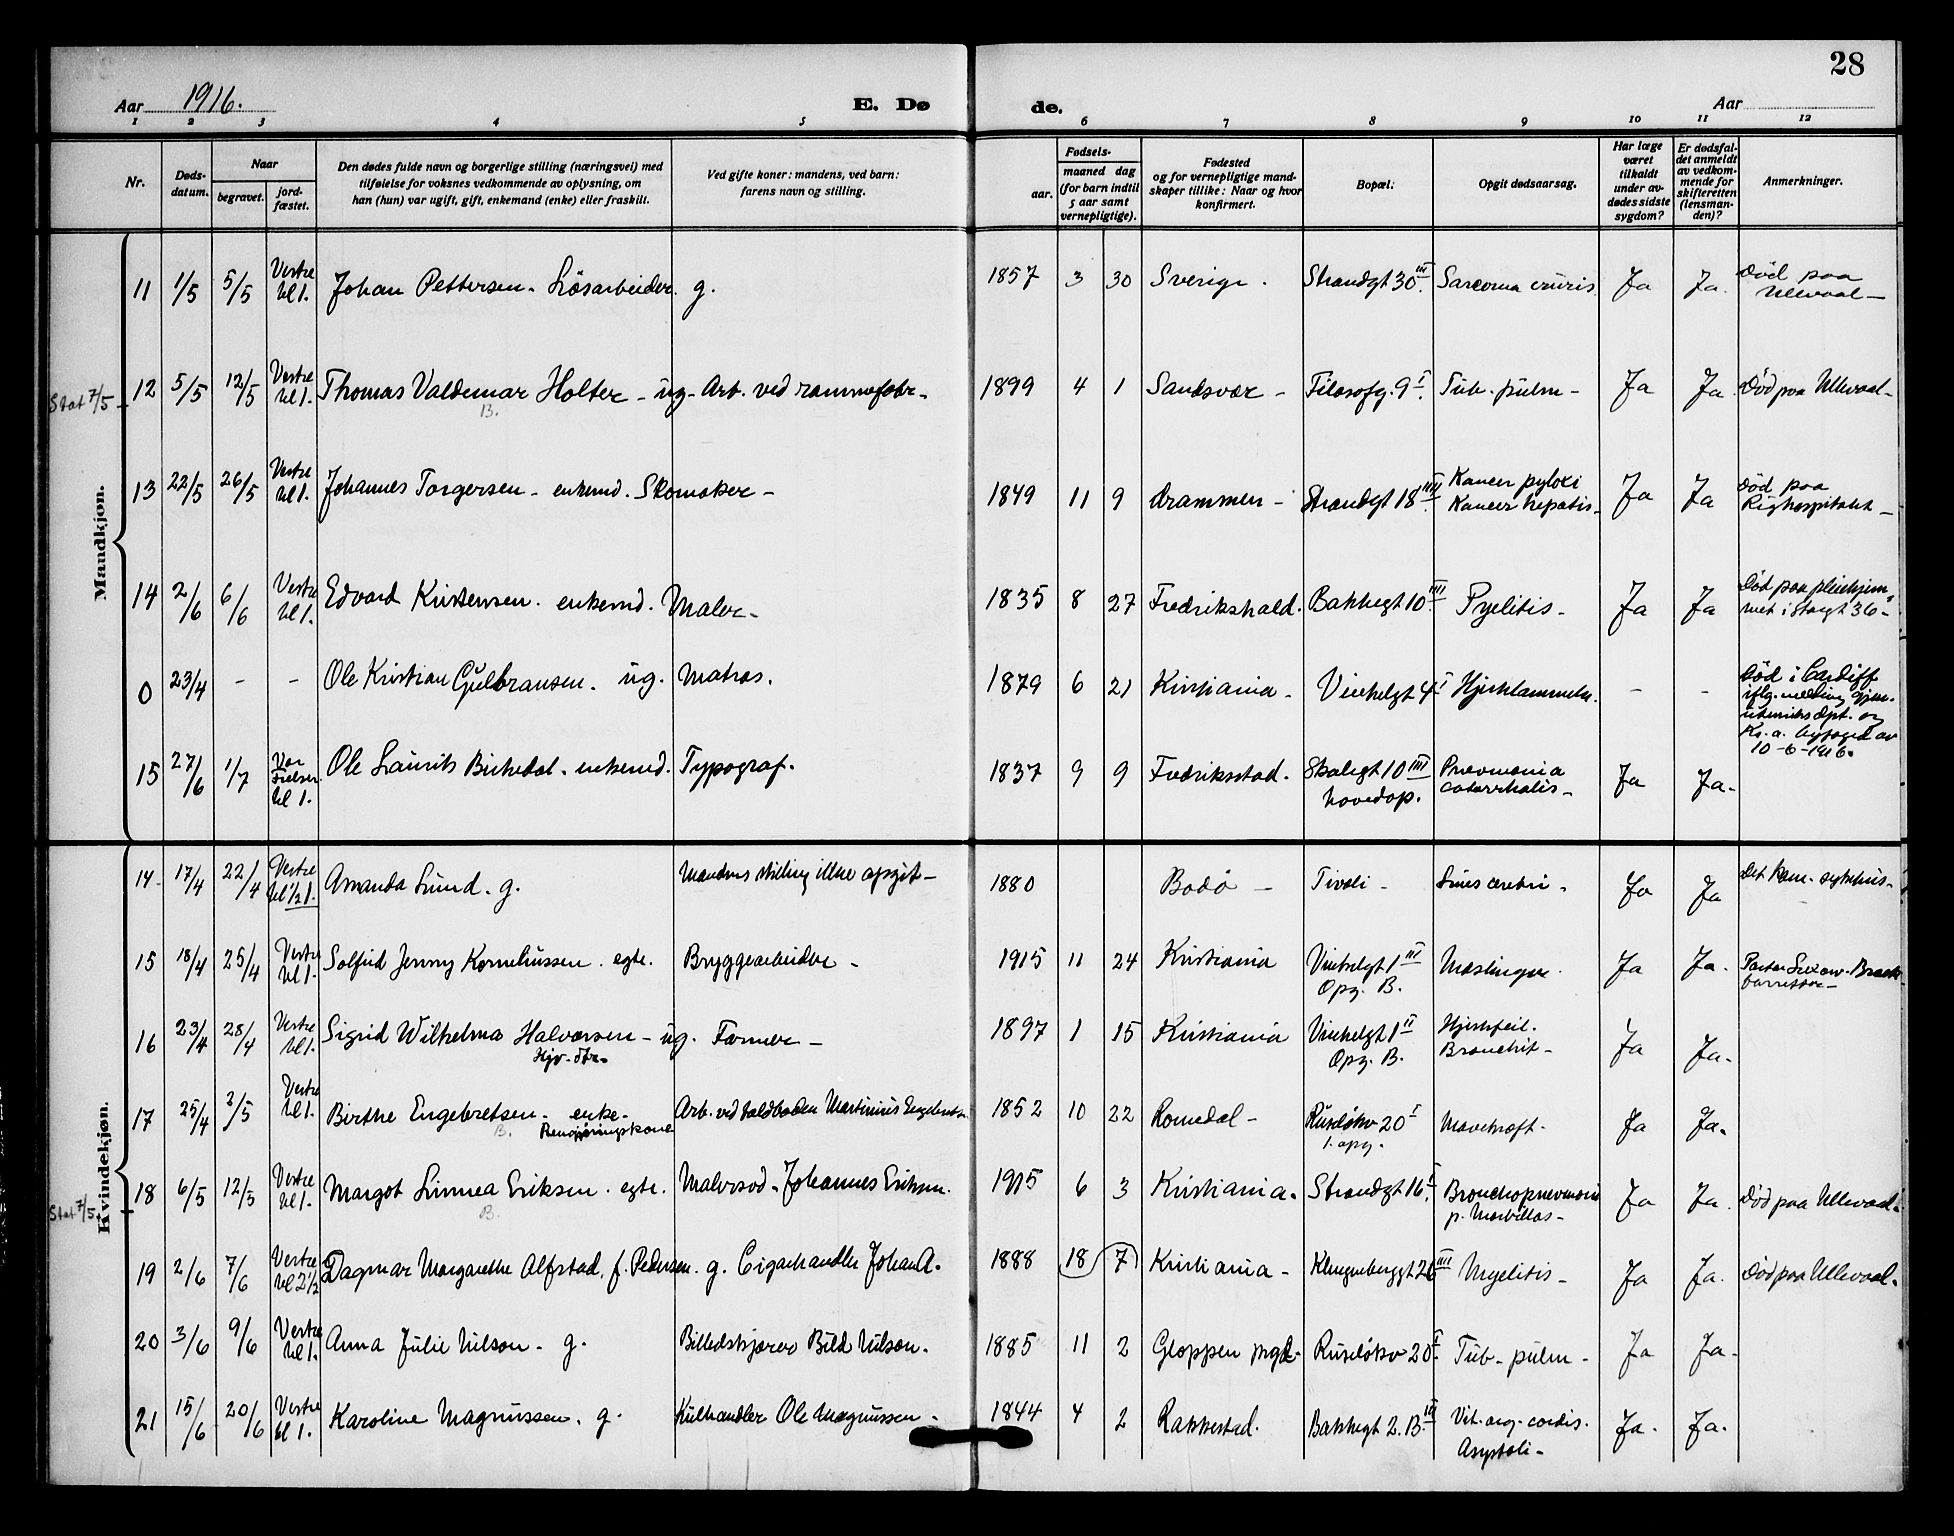 28
Aar 1916. E. Døde. Aar
1 2 3 4 5 6 7 8 9 10 11 12
Nr. Døds-datum. Naar begravet. jord-fæstet. Den dødes fulde navn og borgerlige stilling (næringsvei) med tilføielse for voksnes vedkommende av oplysning, om han (hun) var ugift, gift, enkemand (enke) eller fraskilt. Ved gifte koner: mandens, ved barn: farens navn og stilling. Fødsels- aar. maaned dag (for barn indtil 5 aar samt vernepligtige). Fødested og for vernepligtige mand-skaper tillike: Naar og hvor konfirmert. Bopæl: Opgit dødsaarsag. Har læge været tilkaldt under av-dødes sidste sygdom? Er dødsfal-det anmeldt av vedkom-mende for skifteretten (lensman-den)? Anmerkninger.
Mandkjøn.
11 1/5 5/5 Vestre kl 1. Johan Pettersen. Løsarbeider. g. 1857 3 30 Sverige. Strandgt 30 III. Sarcoma cruris. Ja Ja. Død paa Ullevaal-
Stat 7/5- 12 5/5 12/5 Vestre kl 1. Thomas Valdemar Holter - ug. Arb. ved rammefabr. - 1899 4 1 Sandsvær - Filosofg. 9 I. Tub. pulm - Ja Ja. Død paa Ullevaal-
B.
13 22/5 26/5 Vestre kl 1. Johannes Torgersen - enkemd. Skomaker - 1849 11 9 Drammen - Strandgt 18 IIII. Kancer pylori Kancer hepatis - Ja Ja Død paa Righospitalet -
14 2/6 6/6 Vestre kl 1. Edvard Kristensen. enkemd. Maler - 1835 8 27 Fredrikshald. Bakkegt 10 III Pyelitis - Ja Ja Død paa pleiehjem-met i Storgt 36 -
0 23/4 - - Ole Kristian Gulbransen. ug. Matros. 1879 6 21 Kristiania - Vinkelgt 4 I Hjertelammelse. - - Død i Cardiff iflg. melding gjen. utenriksdpt. og Kr.a. byfoged av 10-6-1916.
15 27/6 1/7 Vor Frelser kl 1. Ole Laurits Birkedal. enkemd. Typograf. 1837 9 9 Fredriksstad. Skaligt 10 IIII hovedop. Pnevmonia catarrhalis - Ja Ja.
Kvindekjøn.
14. 17/4 22/4 Vestre kl 1/2 1. Amanda Lund. g. Mandens stilling ikke opgit - 1880 Bodø - Tivoli - Lues cerebri. Ja Ja Det kom. sykehus-
15 18/4 25/4 Vestre kl 1. Solfrid Jenny Kornelius­sen. egte. Bryggearbeider - 1915 11 24 Kristiania Vinkelgt 1 III Opg. B. Meslinger. Ja Ja. Pastor
16 23/4 28/4 Vestre kl 1. Sigrid Wilhelma Halvorsen - ug. Farmer - 1897 1 15 Kristiania Vinkelgt 1 II Opg. B. Hjertefeil. Bronchit - Ja Ja.
Hjv. dtr.
17 25/4 2/5 Vestre kl 1. Birthe Engebretsen - enke - Arb. ved toldboden Martinius Engebretsen 1852 10 22 Romedal - Ruseløkv 20 I 1. opg. Mavekræft. Ja Ja.
B. Rengjøringskone
Stat 7/5- 18 6/5 12/5 Vestre kl 1. Margot Linnea Eriksen. egte. Malersvd. Johannes Eriksen. 1915 6 3 Kristiania. Strandgt 16 I. Bronchopnevmoni p. Morbillos - Ja Ja. Død paa Ullevaal.
B.
19 2/6 7/6 Vestre kl 2 1/2 Dagmar Margarethe Alfstad, f. Pedersen. g. Cigarhandler Johan A. 1888 18 7 Kristiania - Klingenberggt 26 III Myelitis - Ja Ja. Død paa Ullevaal.
20 3/6 9/6 Vestre kl 1. Anna Julie Nilson - g. Billedskjærer Bild Nilson. 1885 11 2 Gloppen prgd. Ruseløkv 20 I. Tub. pulm - Ja Ja.
21 15/6 20/6 Vestre kl 1. Karoline Magnussen. g. Kulhandler Ole Magnussen. 1844 4 2 Rakkestad. Bakkegt 2. B. III Vit. org. cordis. Asystoli - Ja. Ja.